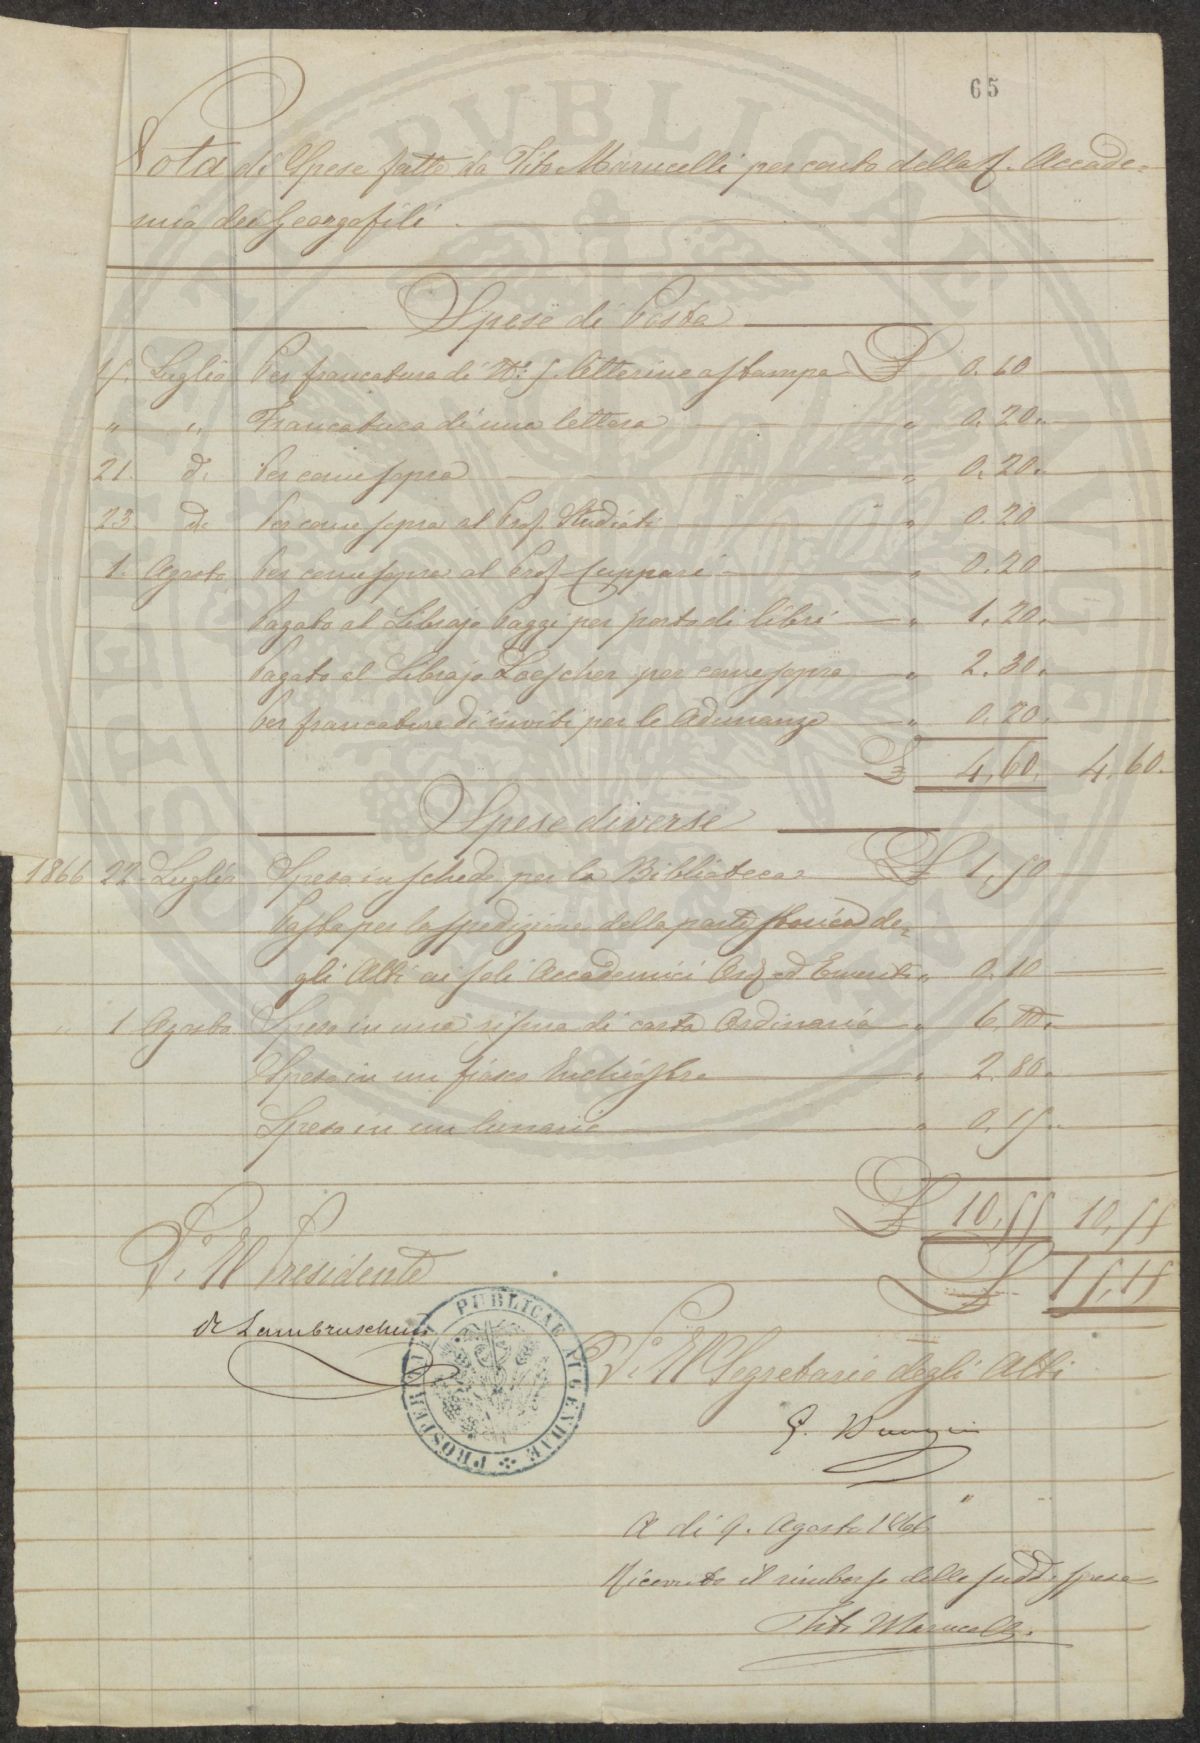 65
Nota di Spese fatte da Tito Marucelli per conto della R. Accade=
mia dei Georgofili
Spese di Posta
15. Luglio Per francatura di N: 5 letterine a stampa £ 0.60
" " Francatura di una lettera " 0.20
21. do. Per come sopra " 0.20
23 do. Per come sopra al Prof. Studiati " 0.20
1. Agosto Per come sopra al Prof. Cuppari " 0.20
Pagato al Librajo Paggi per porto di libri " 1.20
Pagato al Librajo Loescher per come sopra " 2.30
Per francature di inviti per le Adunanze " 0.20
£ 4,60. 4,60.
Spese diverse
1866 22 Luglio Spesa in schede per la Biblioteca £ 1,50
Pasta per la spedizione della parte storica de=
gli Atti ai soli Accademici Ord. ed Emeriti " 0.10
" 1 Agosto Spesa in una risma di carta Ordinaria " 6.00.
Spesa in un fiasco Inchiostro " 2.80
Spesa in un lunario " 0.15
£ 10,55 10,55
£ 15,15
Vo. Il Presidente
R Lambruschini
PROSPERITATI PUBLICAE AUGENDAE
Vo. Il Segretario degli Atti
A di 9. Agosto 1866
Ricevuto il rimborso delle sudd. spese
Tito Marucelli